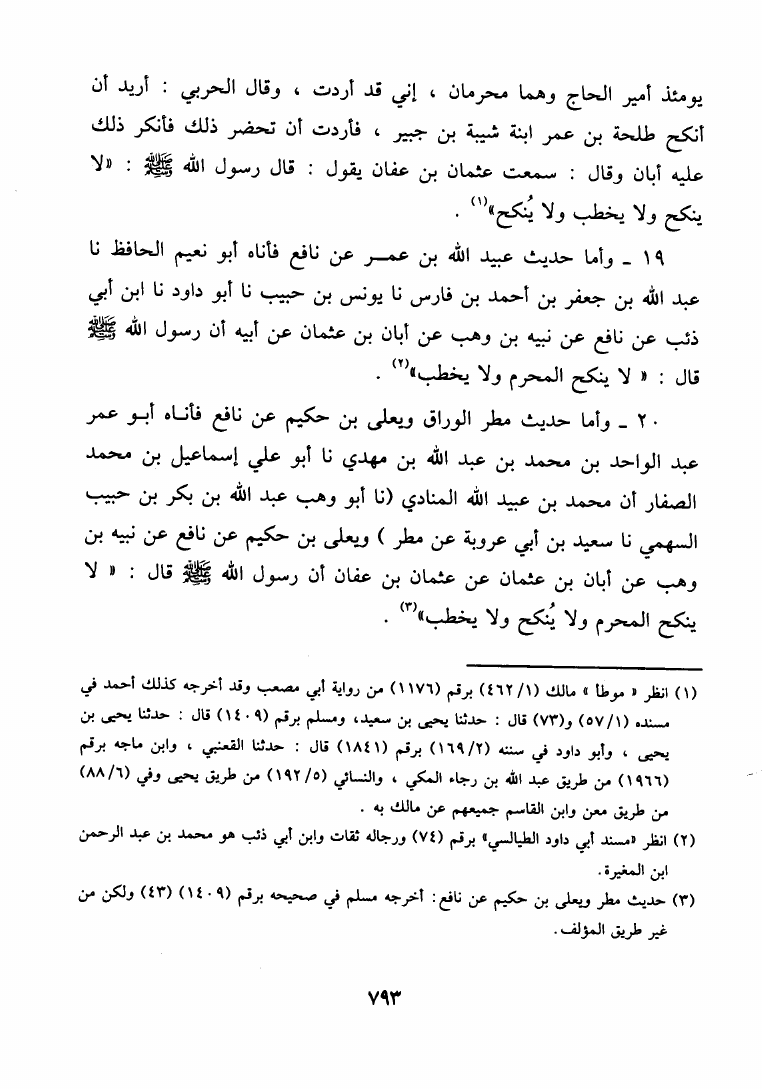 يومئذ أمير الحاج وهما محرمان ، إني قد أردت ، وقال الحربي : أريد أن
أنكح طلحة بن عمر ابنة شيبة بن جبير ، فأردت أن تحضر ذلك فأنكر ذلك
عليه أبان وقال : سمعت عثمان بن عفان يقول : قال رسول الله ﷺ : «لا
ينكح ولا يخطب ولا يُنكح»(١) .
١٩ ـ وأما حديث عبيد الله بن عمــر عن نافع فأناه أبو نعيم الحافظ نا
عبد الله بن جعفر بن أحمد بن فارس نا يونس بن حبيب نا أبو داود نا ابن أبي
ذئب عن نافع عن نبيه بن وهب عن أبان بن عثمان عن أبيه أن رسول الله ﷺ
قال : « لا ينكح المحرم ولا يخطب»(٢) .
٢٠ ـ وأما حديث مطر الوراق ويعلى بن حكيم عن نافع فأناه أبو عمر
عبد الواحد بن محمد بن عبد الله بن مهدي نا أبو علي إسماعيل بن محمد
الصفار أن محمد بن عبيد الله المنادي (نا أبو وهب عبد الله بن بكر بن حبيب
السهمي نا سعيد بن أبي عروبة عن مطر ) ويعلى بن حكيم عن نافع عن نبيه بن
وهب عن أبان بن عثمان عن عثمان بن عفان أن رسول الله ﷺ قال : « لا
ينكح المحرم ولا يُنكح ولا يخطب»(٣) .
(١) انظر « موطأ » مالك (٤٦٢/١) برقم (١١٧٦) من رواية أبي مصعب وقد أخرجه كذلك أحمد في
مسنده (٥٧/١) و(٧٣) قال : حدثنا يحيى بن سعيد، ومسلم برقم (١٤٠٩) قال : حدثنا يحيى بن
يحيى ، وأبو داود في سننه (١٦٩/٢) برقم (١٨٤١) قال : حدثنا القعنبي ، وابن ماجه برقم
(١٩٦٦) من طريق عبد الله بن رجاء المكي ، والنسائي (١٩٢/٥) من طريق يحيى وفي (٨٨/٦)
من طريق معن وابن القاسم جميعهم عن مالك به .
(٢) انظر «مسند أبي داود الطيالسي» برقم (٧٤) ورجاله ثقات وابن أبي ذئب هو محمد بن عبد الرحمن
ابن المغيرة.
(٣) حديث مطر ويعلى بن حكيم عن نافع: أخرجه مسلم في صحيحه برقم (١٤٠٩) (٤٣) ولكن من
غير طريق المؤلف.
٧٩٣